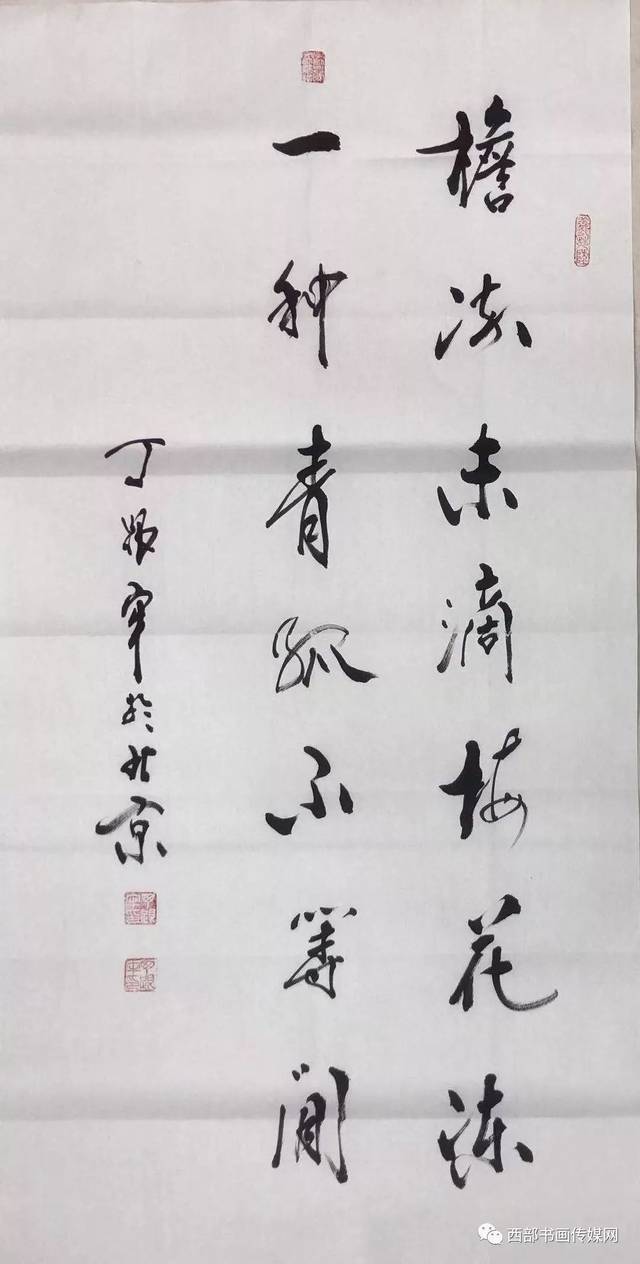 檐流未滴梅花冻
一种青孤不等闲
丁于北京
西部书画传媒网